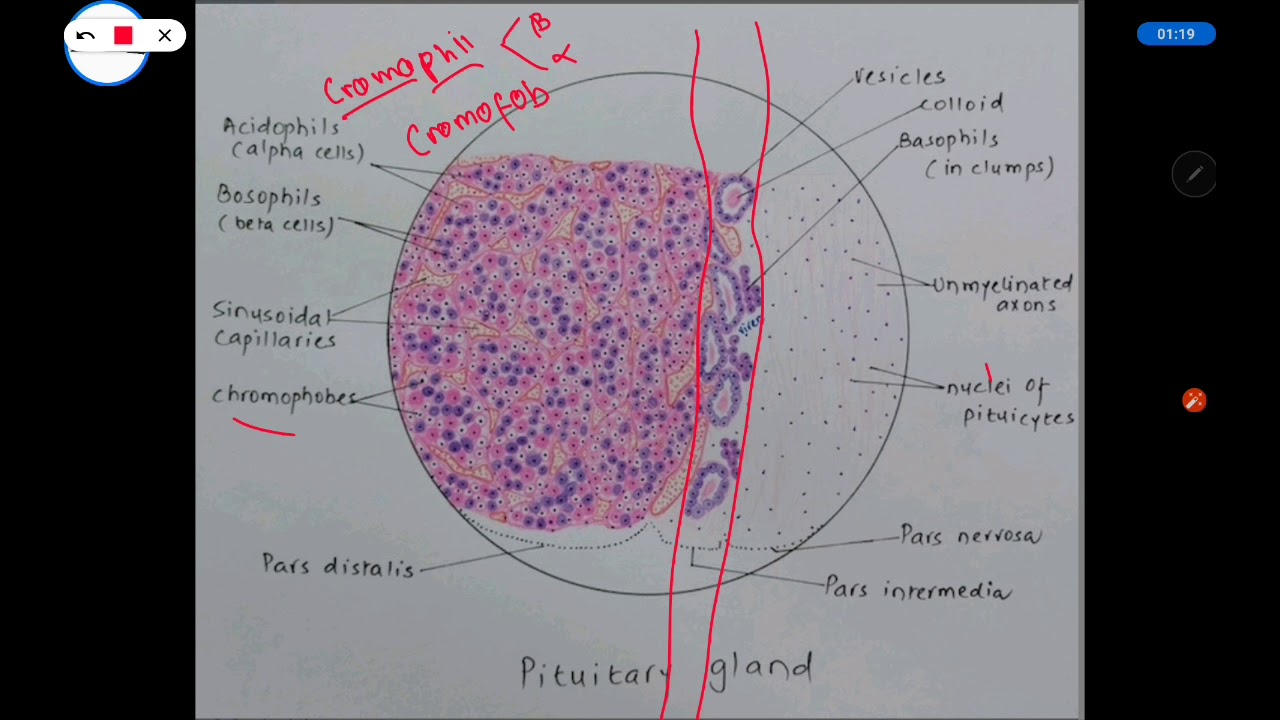 01:19
Cromophil
β
α
Cromofob
Acidophils
(alpha cells)
Bosophils
(beta cells)
Sinusoidal
Capillaries
chromophobes
Pars distalis
vesicles
colloid
Basophils
(in clumps)
Unmyelinated
axons
nuclei of
pituicytes
Pars nervosa
Pars intermedia
Pituitary gland